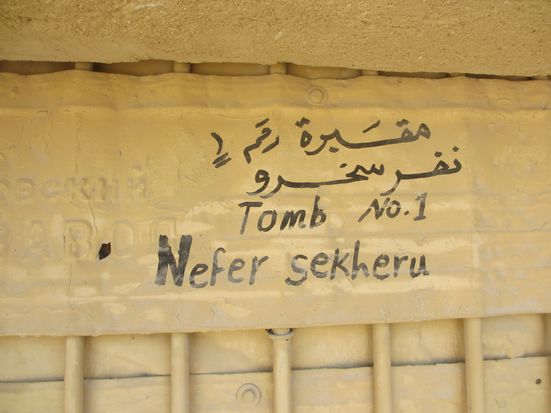 مقبرة رقم ١
نفر سخرو
Tomb No.1
Nefer sekheru
овский
ЗАВОД